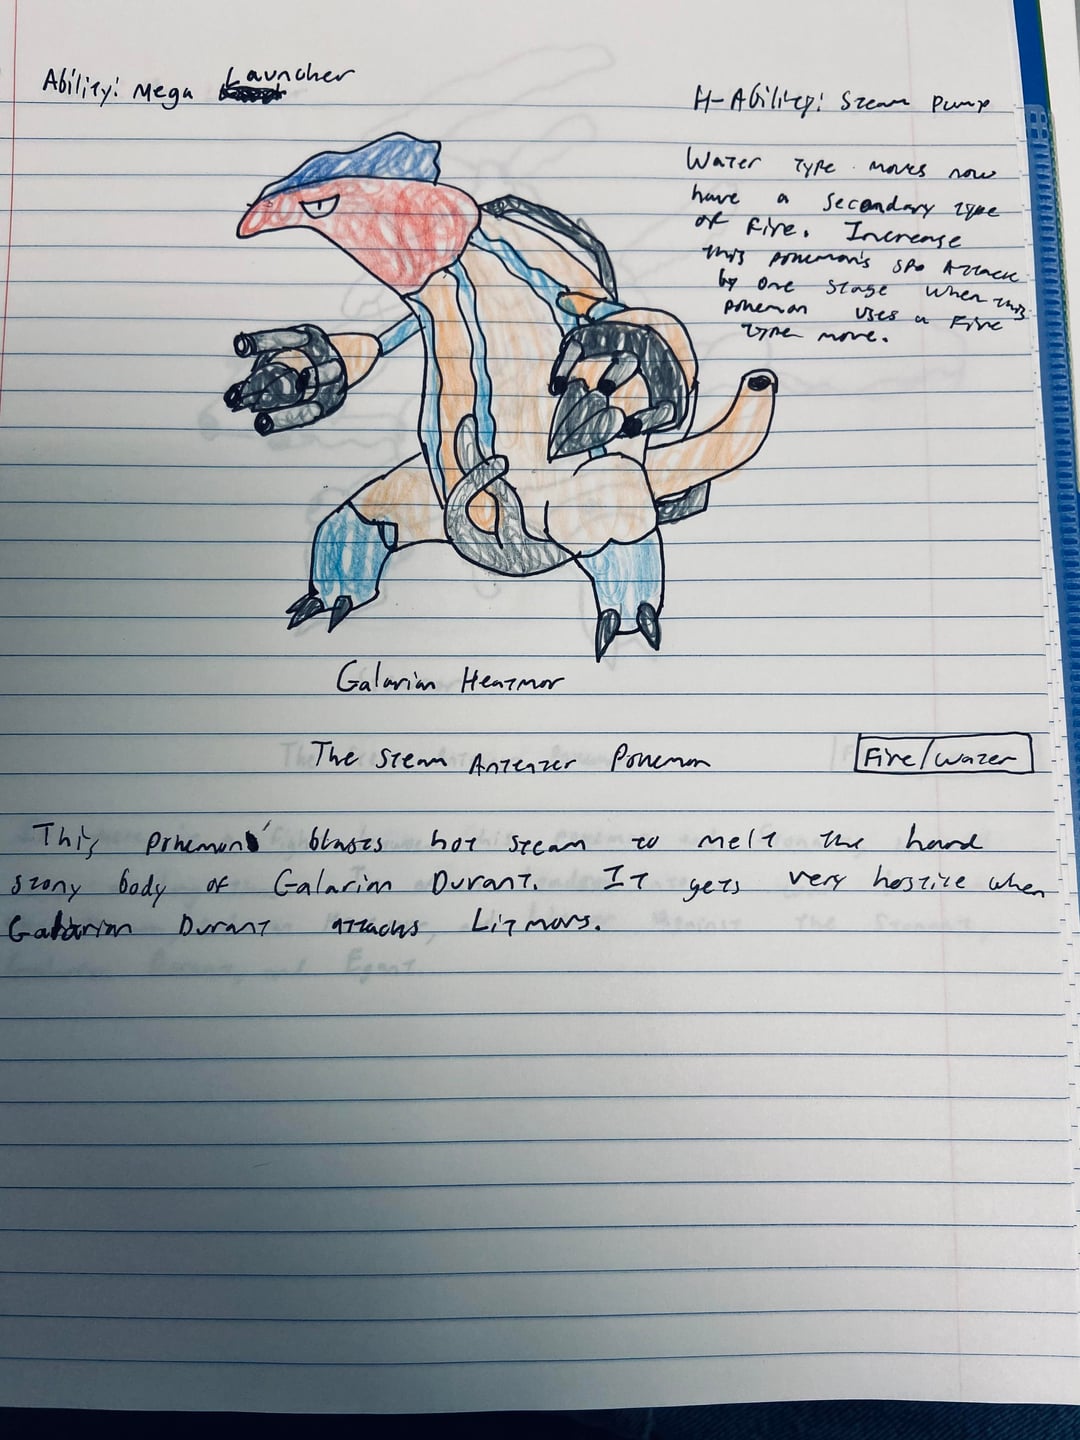 Ability: Mega Launcher
H-Ability: Steam Pump
Water type moves now
have a secondary type
of Fire. Increase
this pokemon's Spa Attack
by one stage when this
pokemon uses a Fire
type move.
Galarian Heatmor
The Steam Anteater Pokemon
Fire/Water
This pokemon blasts hot steam to melt the hard
stony body of Galarian Durant. It gets very hostile when
Galarian Durant attacks Litmors.